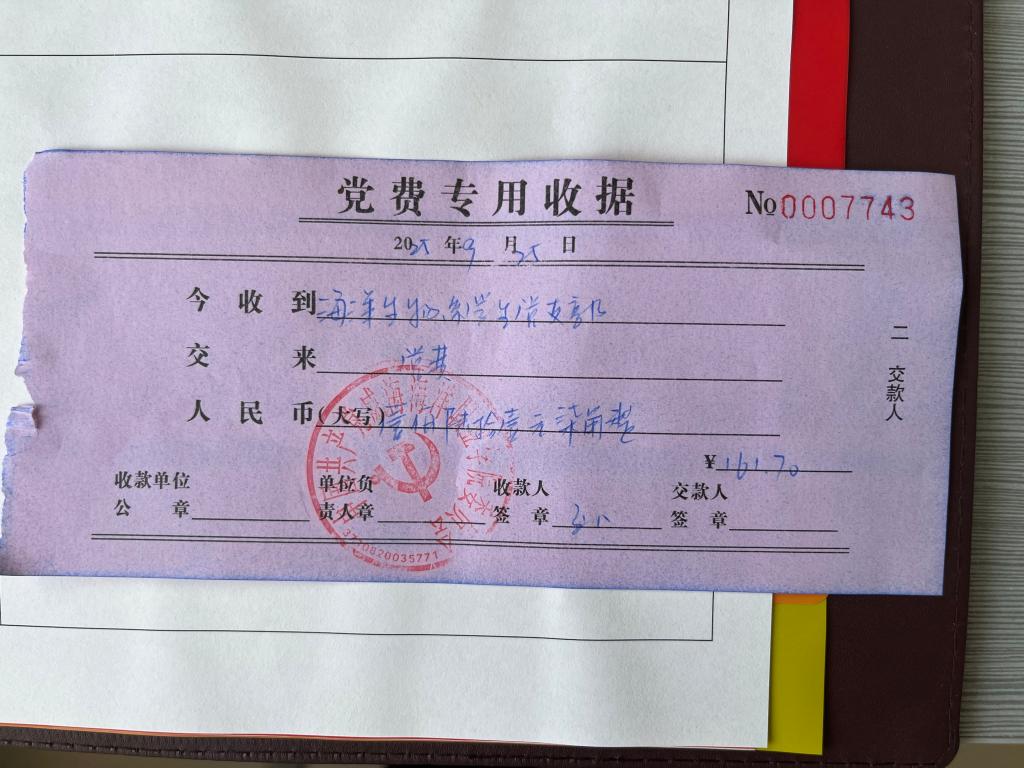 党费专用收据
No 0007743
2025 年 9 月 25 日
今收到 海洋生物系学生党支部
交来 党费
人民币(大写) 壹佰陆拾壹元柒角整
¥ 161.70
收款单位公章
单位负责人章
收款人签章
交款人签章
二 交款人
3710820035771